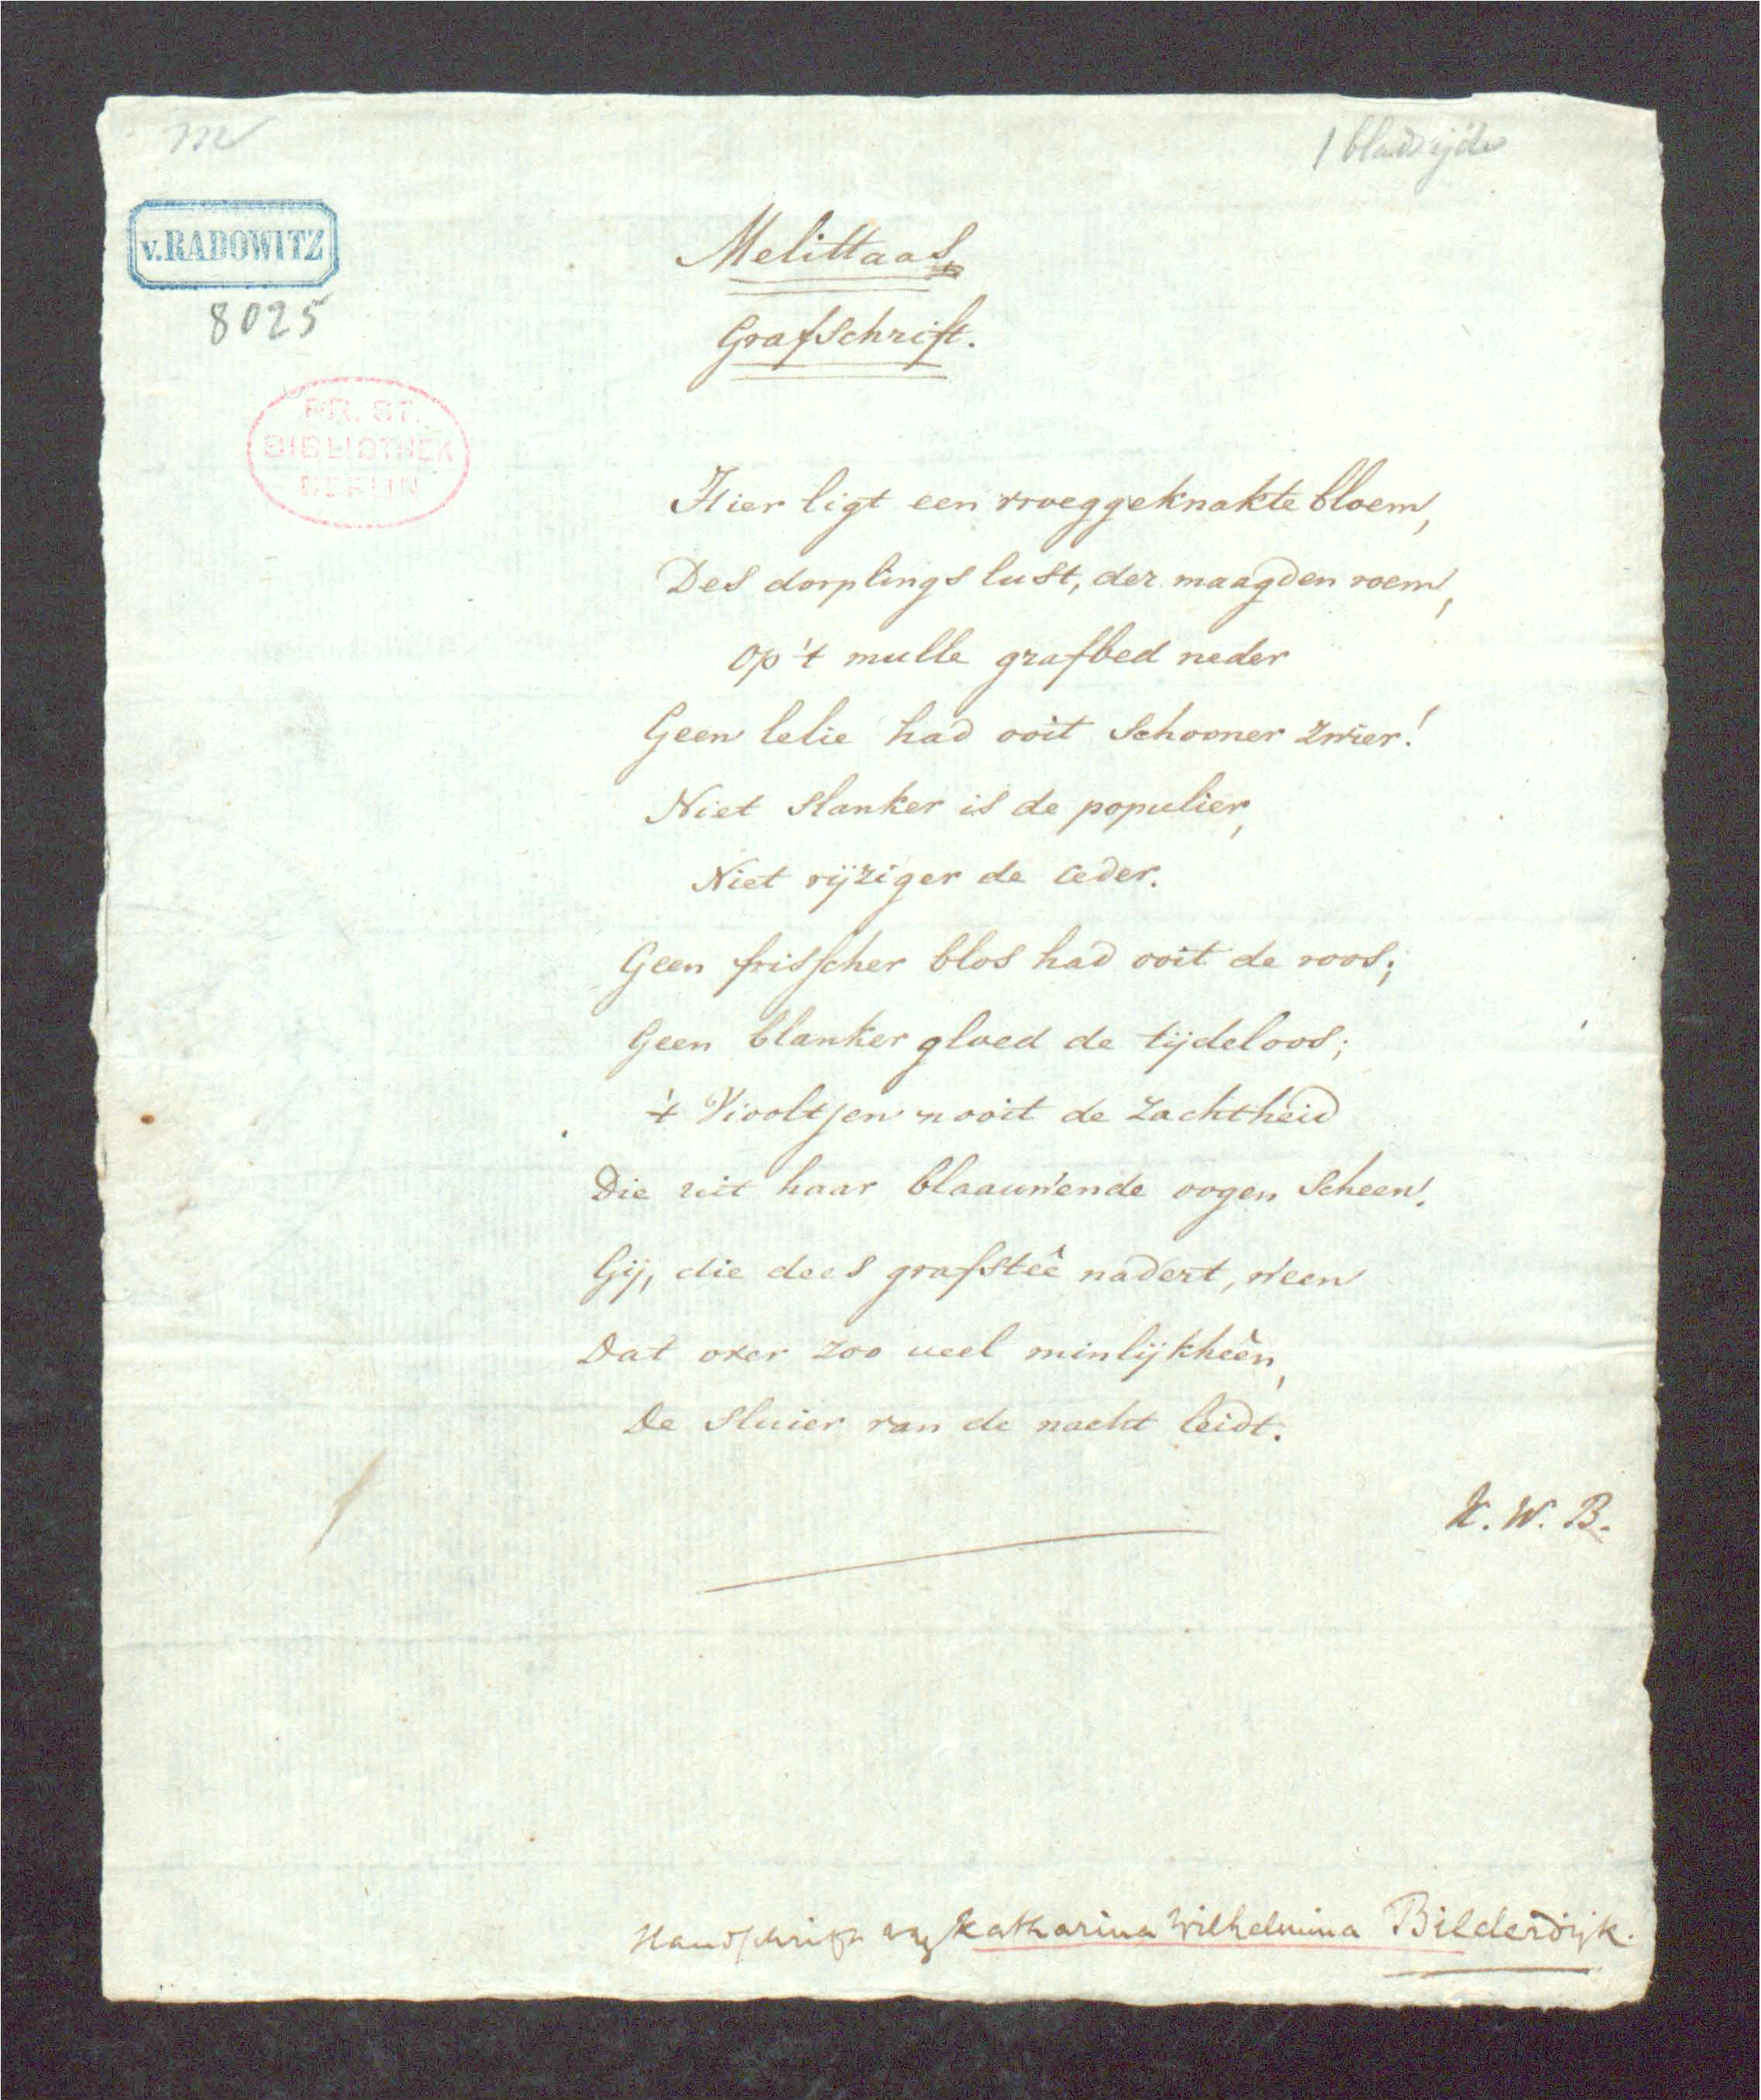 m
1 bladzijde
v. RADOWITZ
8025
PR. ST.
BIBLIOTHEK
BERLIN
Melittaas
Grafschrift.
Hier ligt een vroeggeknakte bloem,
Des dorplings lust, der maagden roem,
Op 't mulle grafbed neder
Geen lelie had ooit schooner zwier!
Niet slanker is de populier,
Niet rijziger de ceder.
Geen frisscher blos had ooit de roos;
Geen blanker gloed de tijdeloos;
't Viooltjen nooit de zachtheid
Die uit haar blaauwende oogen scheen.
Gij, die dees grafsteê nadert, ween
Dat over zoo veel minlijkheên,
De sluier van de nacht leidt.
K. W. B.
Handschrift van Katharina Wilhelmina Bilderdijk.